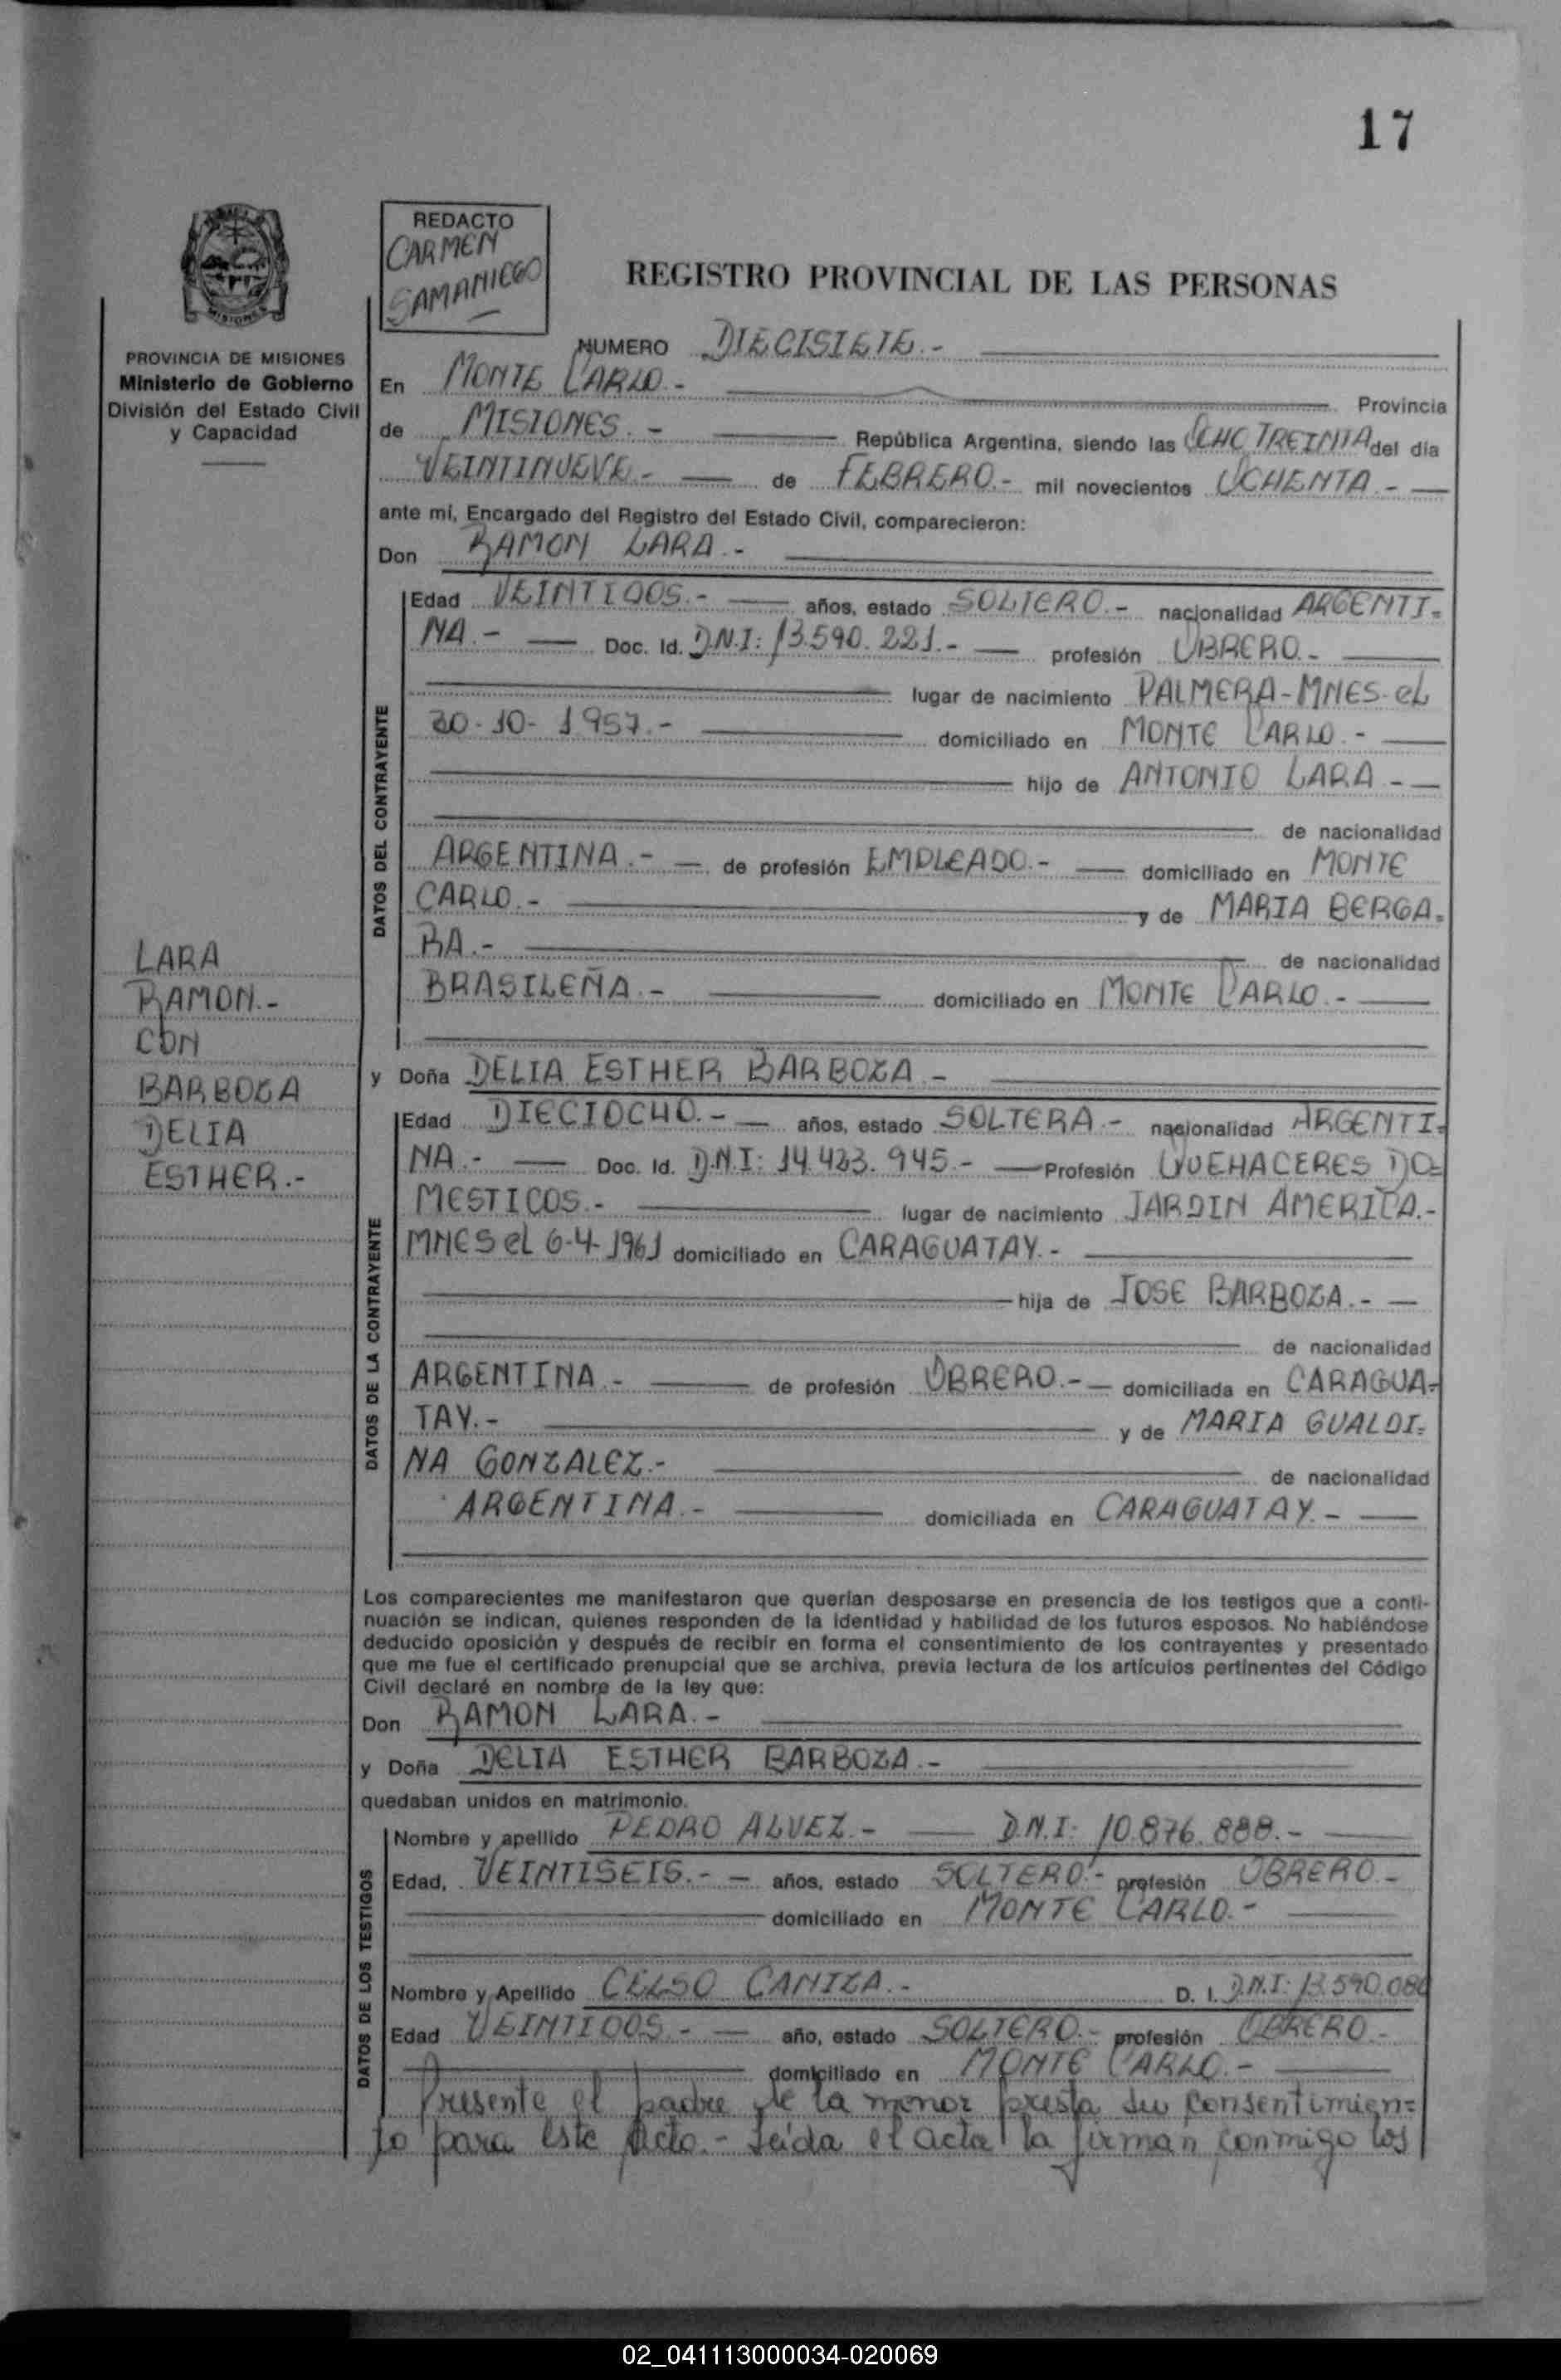 17
REDACTO
CARMEN
SAMANIEGO
REGISTRO PROVINCIAL DE LAS PERSONAS
PROVINCIA DE MISIONES
Ministerio de Gobierno
División del Estado Civil
y Capacidad
NUMERO DIECISIETE.-
En MONTE CARLO.- Provincia
de MISIONES.- República Argentina, siendo las OCHO TREINTA del día
VEINTINUEVE.- de FEBRERO.- mil novecientos OCHENTA.-
ante mí, Encargado del Registro del Estado Civil, comparecieron:
Don RAMON LARA.-
DATOS DEL CONTRAYENTE
Edad VEINTIDOS.- años, estado SOLTERO.- nacionalidad ARGENTI-
NA.- Doc. Id. D.N.I: 13.590.221.- profesión OBRERO.-
lugar de nacimiento PALMERA-MNES-eL
30-10-1957.- domiciliado en MONTE CARLO.-
hijo de ANTONIO LARA.-
de nacionalidad
ARGENTINA.- de profesión EMPLEADO.- domiciliado en MONTE
CARLO.- y de MARIA BERGA-
RA.- de nacionalidad
BRASILEÑA.- domiciliado en MONTE CARLO.-
LARA
RAMON.-
CON
BARBOZA
DELIA
ESTHER.-
y Doña DELIA ESTHER BARBOZA.-
DATOS DE LA CONTRAYENTE
Edad DIECIOCHO.- años, estado SOLTERA.- nacionalidad ARGENTI-
NA.- Doc. Id. D.N.I: 14.423.945.- Profesión QUEHACERES DO-
MESTICOS.- lugar de nacimiento JARDIN AMERICA.-
MNES eL 6-4-1961 domiciliado en CARAGUATAY.-
hija de JOSE BARBOZA.-
de nacionalidad
ARGENTINA.- de profesión OBRERO.- domiciliada en CARAGUA-
TAY.- y de MARIA GUALDI-
NA GONZALEZ.- de nacionalidad
ARGENTINA.- domiciliada en CARAGUATAY.-
Los comparecientes me manifestaron que querían desposarse en presencia de los testigos que a conti-
nuación se indican, quienes responden de la identidad y habilidad de los futuros esposos. No habiéndose
deducido oposición y después de recibir en forma el consentimiento de los contrayentes y presentado
que me fue el certificado prenupcial que se archiva, previa lectura de los artículos pertinentes del Código
Civil declaré en nombre de la ley que:
Don RAMON LARA.-
y Doña DELIA ESTHER BARBOZA.-
quedaban unidos en matrimonio.
DATOS DE LOS TESTIGOS
Nombre y apellido PEDRO ALVEZ.- D.N.I: 10.876.888.-
Edad, VEINTISEIS.- años, estado SOLTERO.- profesión OBRERO.-
domiciliado en MONTE CARLO.-
Nombre y Apellido CELSO CANIZA.- D. I. D.N.I: 13.590.086
Edad VEINTIDOS.- año, estado SOLTERO.- profesión OBRERO.-
domiciliado en MONTE CARLO.-
Presente el padre de la menor presta su consentimien-
to para este Acto.- Leida el acta la firman conmigo los
02_041113000034-020069